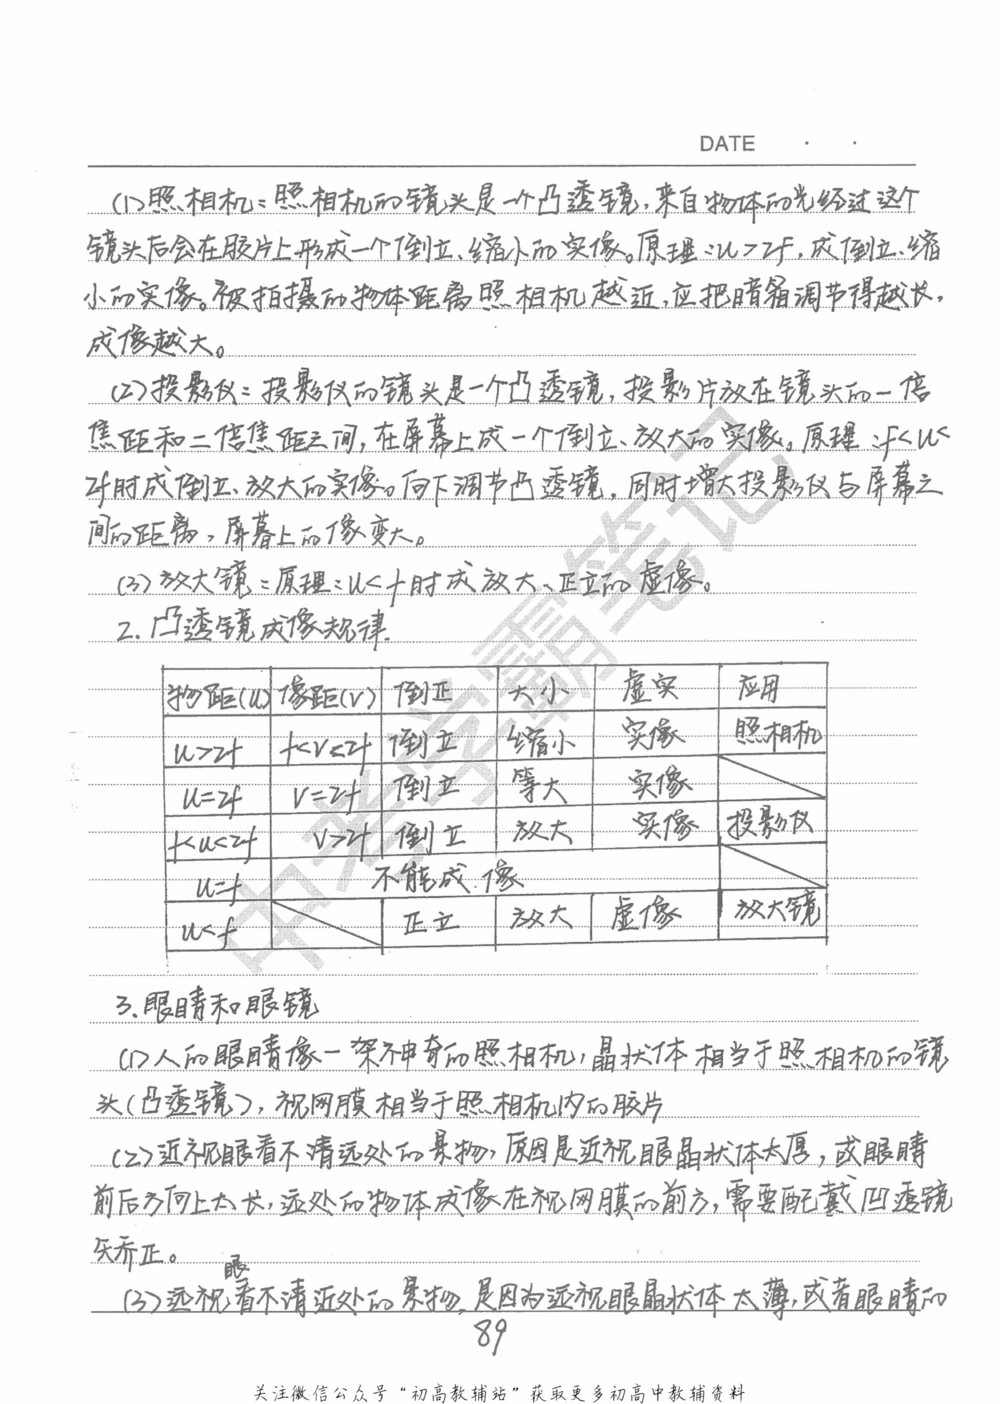 DATE · ·
(1)照相机：照相机的镜头是一个凸透镜，来自物体的光经过这个
镜头后会在胶片上形成一个倒立、缩小的实像。原理：u>2f，成倒立、缩
小的实像。被拍摄的物体距离照相机越近，应把暗箱调节得越长，
成像越大。
(2)投影仪：投影仪的镜头是一个凸透镜，投影片放在镜头的一倍
焦距和二倍焦距之间，在屏幕上成一个倒立、放大的实像。原理：f<u<
2f时成倒立、放大的实像。向下调节凸透镜，同时增大投影仪与屏幕之
间的距离，屏幕上的像变大。
(3)放大镜：原理：u<f时成放大、正立的虚像。
2.凸透镜成像规律.
物距(u) 像距(v) 倒正 大小 虚实 应用
u>2f f<v<2f 倒立 缩小 实像 照相机
u=2f v=2f 倒立 等大 实像
f<u<2f v>2f 倒立 放大 实像 投影仪
u=f 不能成像
u<f 正立 放大 虚像 放大镜
3.眼睛和眼镜
(1)人的眼睛像一架神奇的照相机，晶状体相当于照相机的镜
头(凸透镜)，视网膜相当于照相机内的胶片
(2)近视眼看不清远处的景物，原因是近视眼晶状体太厚，或眼睛
前后方向上太长，远处的物体成像在视网膜的前方，需要配戴凹透镜
矫正。
(3)远视眼看不清近处的景物，是因为远视眼晶状体太薄，或者眼睛的
89
关注微信公众号“初高教辅站”获取更多初高中教辅资料
中考学霸笔记